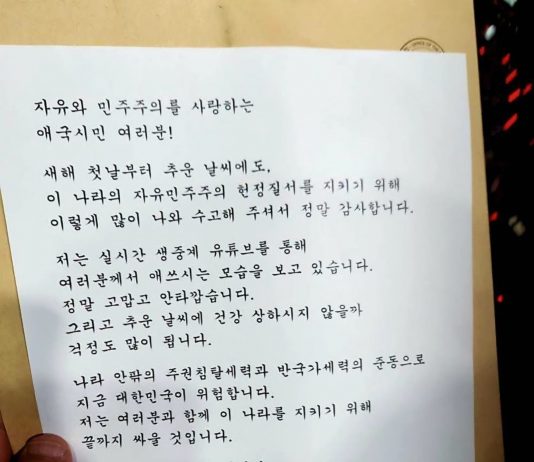 자유와 민주주의를 사랑하는
애국시민 여러분!
새해 첫날부터 추운 날씨에도,
이 나라의 자유민주주의 헌정질서를 지키기 위해
이렇게 많이 나와 수고해 주셔서 정말 감사합니다.
저는 실시간 생중계 유튜브를 통해
여러분께서 애쓰시는 모습을 보고 있습니다.
정말 고맙고 안타깝습니다.
그리고 추운 날씨에 건강 상하시지 않을까
걱정도 많이 됩니다.
나라 안팎의 주권침탈세력과 반국가세력의 준동으로
지금 대한민국이 위험합니다.
저는 여러분과 함께 이 나라를 지키기 위해
끝까지 싸울 것입니다.